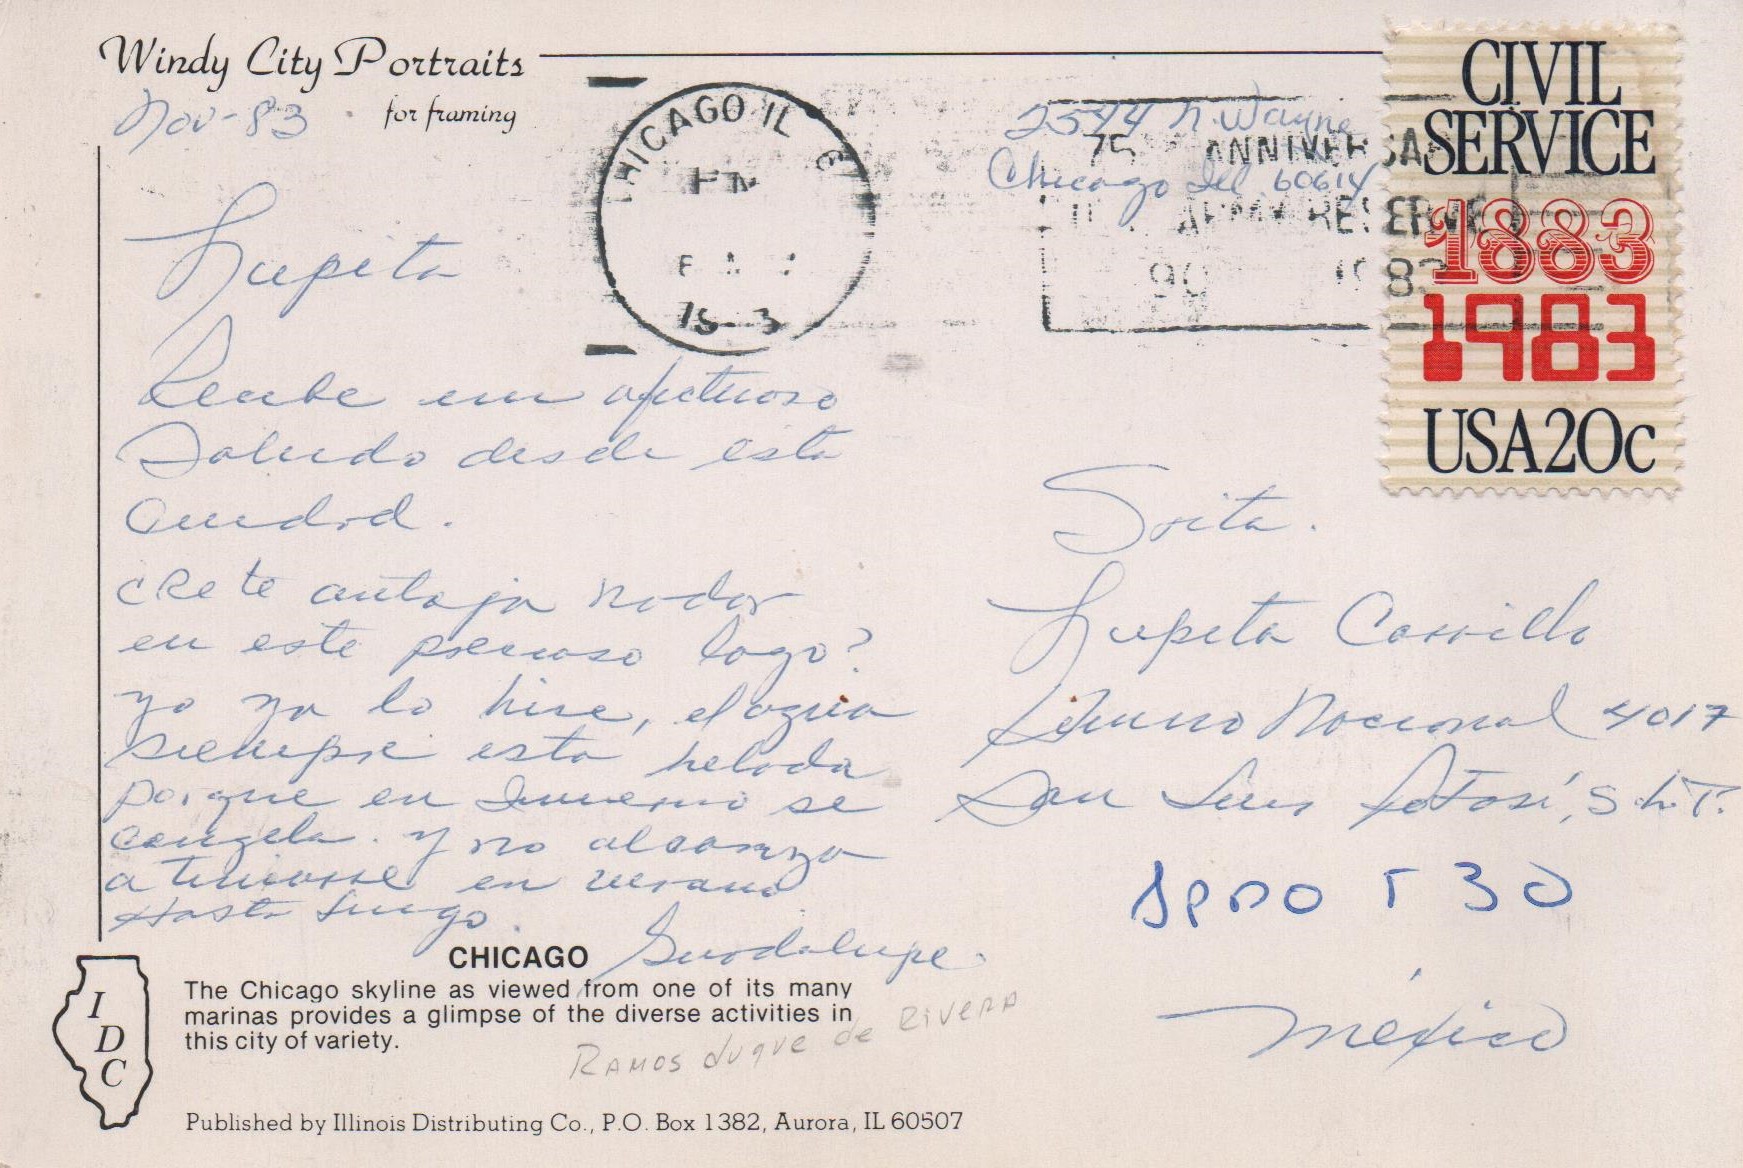 Windy City Portraits
for framing
Nov-83
2544 N. Wayne
Chicago Ill 60614
CHICAGO IL
PM
75 ANNIVERSA
ARMY RESERVE
1983
CIVIL
SERVICE
1883
1983
USA20c
Lupita
Recibe un afectuoso
Saludo desde esta
Ciudad.
cRe te antoja nadar
en este precioso lago?
yo ya lo hice, el agua
siempre esta helada
porque en Invierno se
congela. y no alcanza
a en verano
Hasta luego.
Guadalupe.
RAMOS duque de RIVERA
Srita.
Lupita Carrillo
Himno Nacional 4017
San Luis Potosí, S.L.P.
APDO 730
México
CHICAGO
The Chicago skyline as viewed from one of its many
marinas provides a glimpse of the diverse activities in
this city of variety.
I
D
C
Published by Illinois Distributing Co., P.O. Box 1382, Aurora, IL 60507